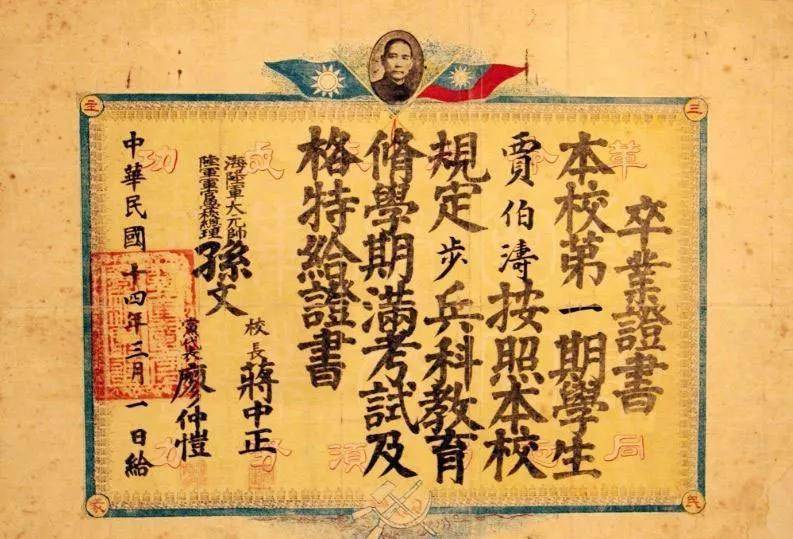 三
民
主
革
成
功
同
須
力
卒業證書
本校第一期學生
賈伯濤按照本校
規定步兵科教育
脩學期滿考試及
格特給證書
海陸軍大元帥
陸軍軍官學校總理
孫文
校長 蔣中正
黨代表 廖仲愷
中華民國十四年三月一日給